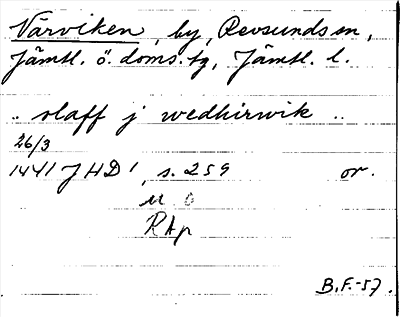 Värviken, by, Revsunds sn,
Jämtl. ö. doms. tg, Jämtl. l.
.. olaff j wedhirwik ..
26/3
1441 JHD 1, s. 259 or.
U o
RAp
B.F.-57.